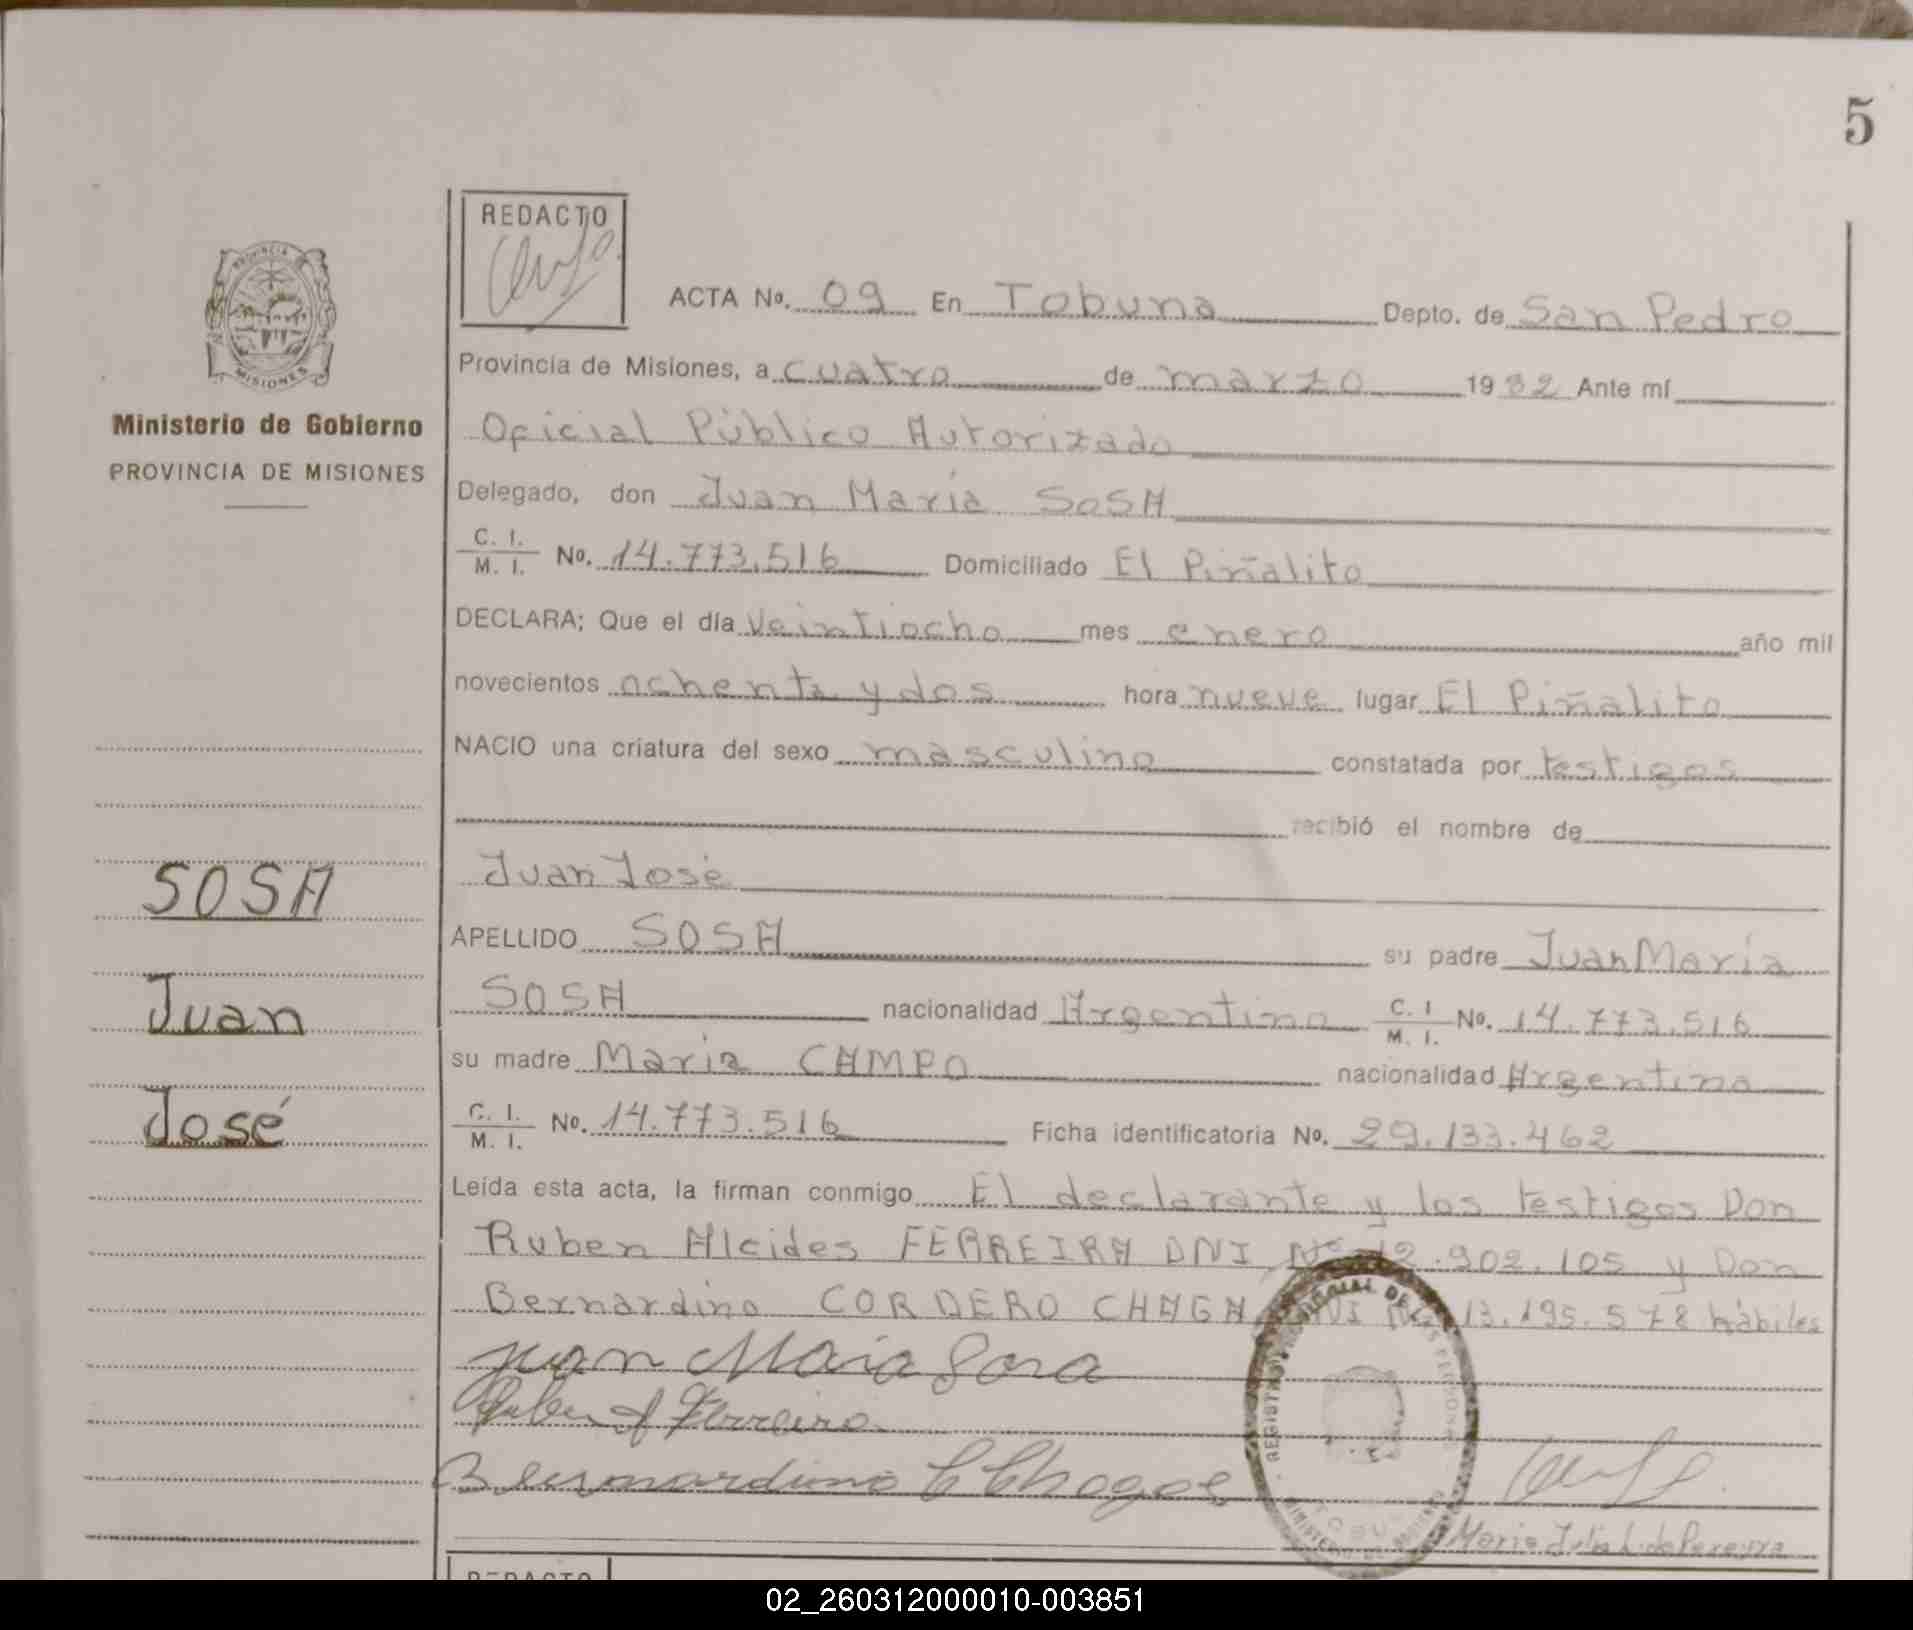 5
REDACTO
ACTA No. 09 En Tobuna Depto. de San Pedro
Provincia de Misiones, a cuatro de marzo 1982 Ante mí
Oficial Público Autorizado
Delegado, don Juan María SOSA
C. I. / M. I. No. 14.773.516 Domiciliado El Piñalito
DECLARA; Que el día veintiocho mes enero año mil
novecientos ochenta y dos hora nueve lugar El Piñalito
NACIO una criatura del sexo masculino constatada por testigos
recibió el nombre de
Juan José
APELLIDO SOSA su padre Juan María
SOSA nacionalidad Argentina C. I / M. I. No. 14.773.516
su madre María CAMPO nacionalidad Argentina
C. I. / M. I. No. 14.773.516 Ficha identificatoria No. 29.133.462
Leída esta acta, la firman conmigo El declarante y los testigos Don
Ruben Alcides FERREIRA DNI Nº 12.902.105 y Don
Bernardino CORDERO CHAGA DNI Nº 13.195.578 hábiles
Juan Maria Sosa
Ruben A Ferreira
Bernardino C Chagas
Maria Julia L. de Pereyra
PROVINCIA DE
MISIONES
Ministerio de Gobierno
PROVINCIA DE MISIONES
SOSA
Juan
José
REDACTO
02_260312000010-003851